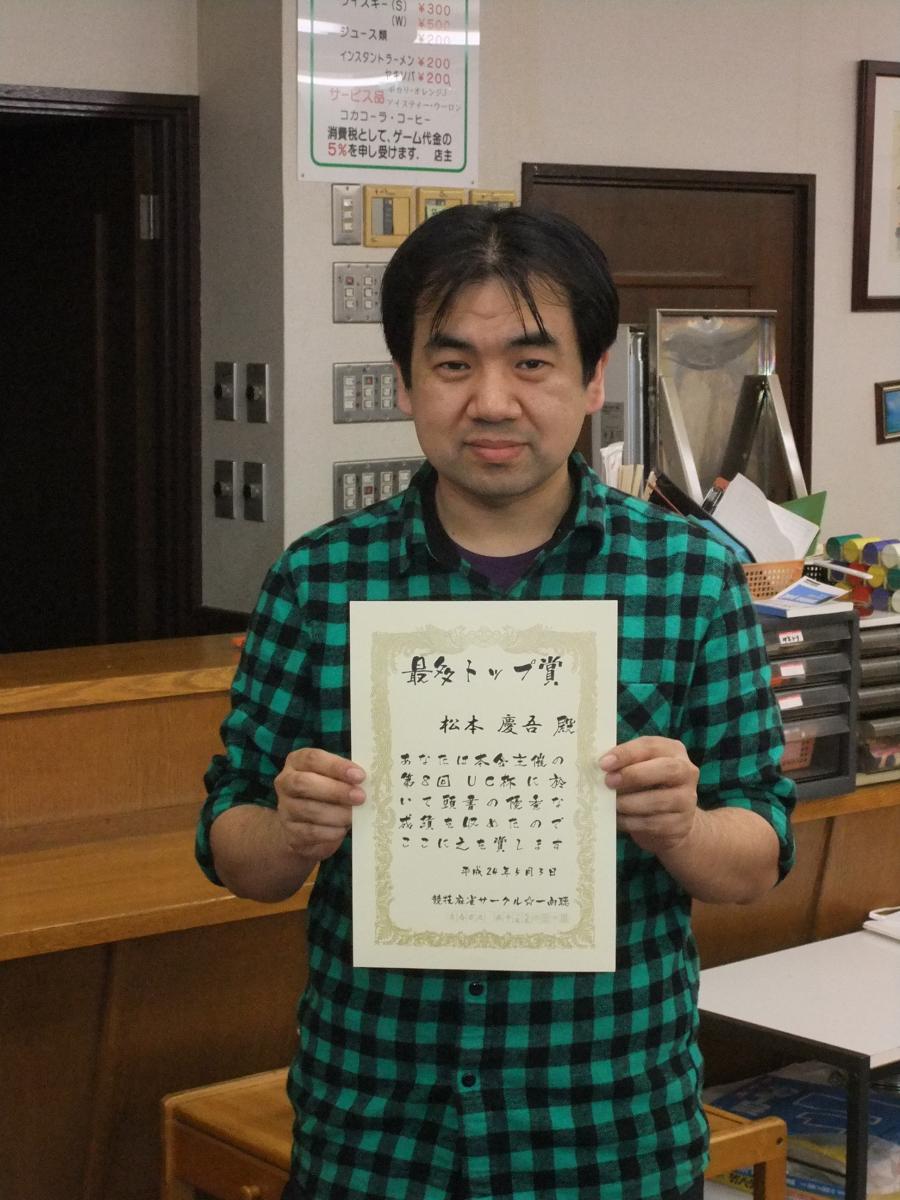 ウイスキー(S) ¥300
(W) ¥500
ジュース類 ¥200
インスタントラーメン ¥200
ヤキソバ ¥200
サービス品
アイスティー・ウーロン
コカコーラ・コーヒー
消費税として、ゲーム代金の
5%を申し受けます。 店主
最多トップ賞
松本 慶吾 殿
あなたは本会主催の
第8回 UC杯に於
いて頭書の優秀な
成績を収めたので
ここに之を賞します
平成24年5月3日
競技麻雀サークル☆一向聴